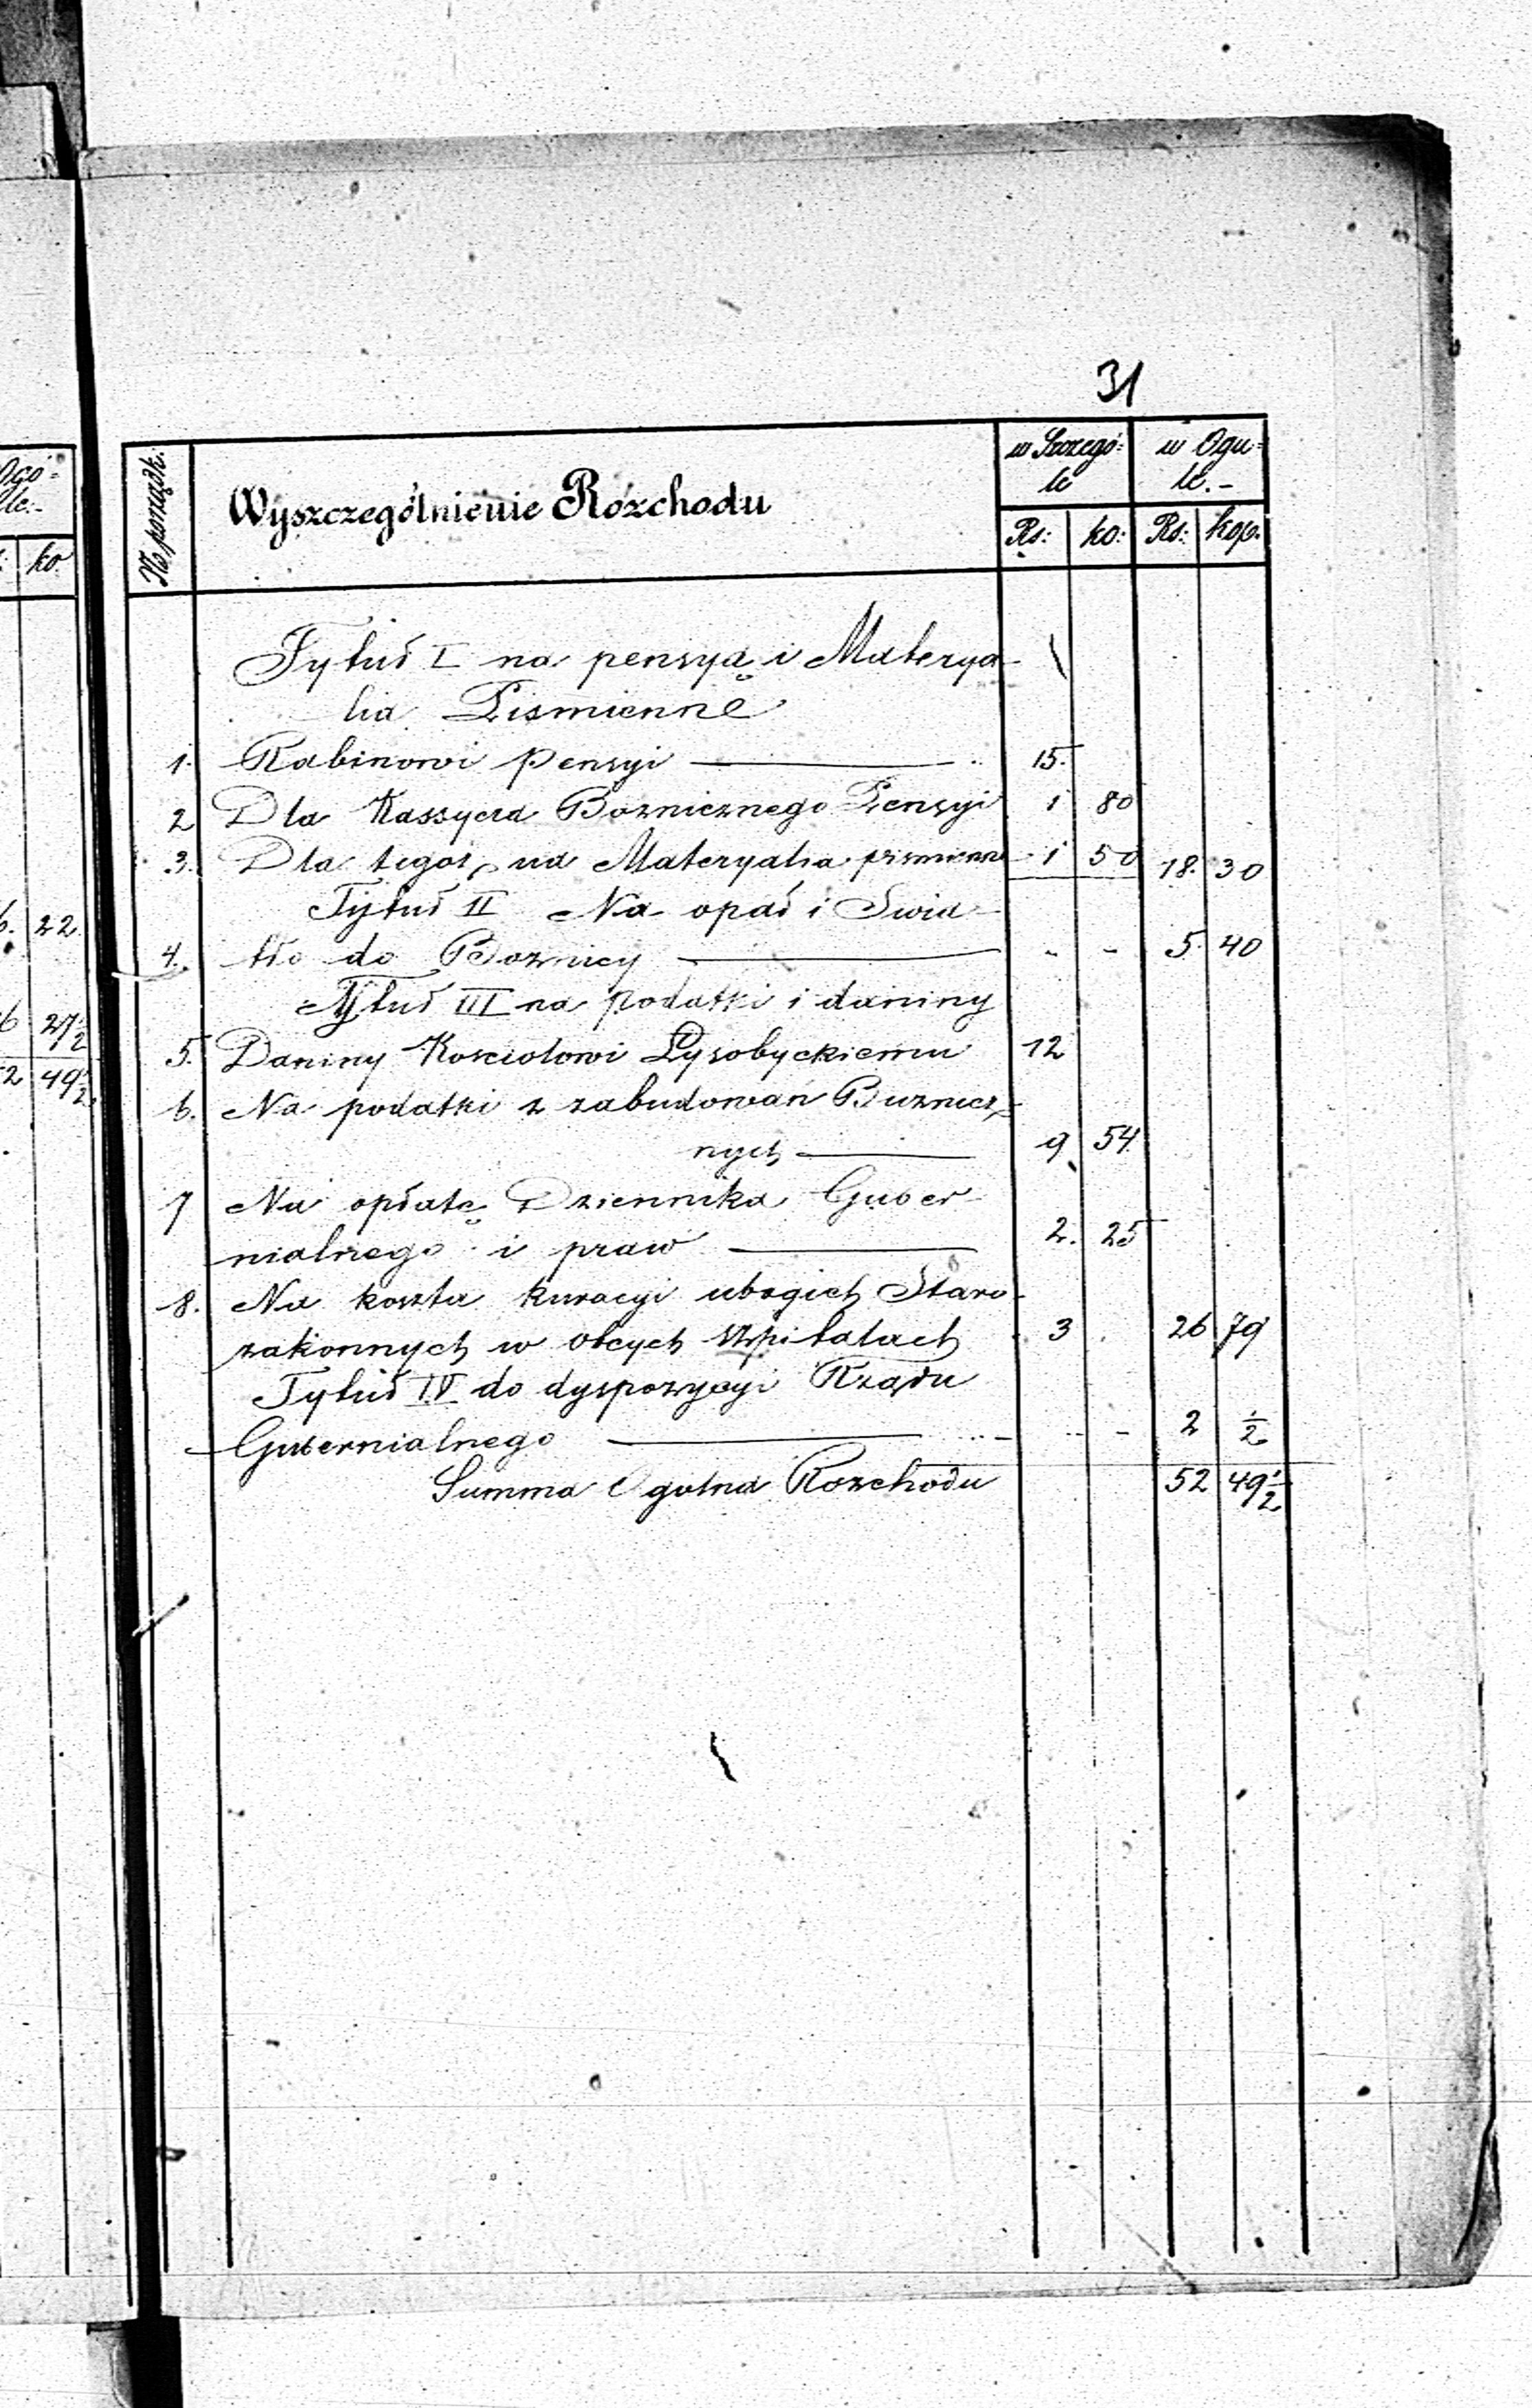 31
Ogó=
le.-
ko
6. 22
6 27½
52 49½
№ porządk.
Wyszczególnienie Rozchodu
w Szczegó=
le
w Ogu=
le.-
Rs: ko: Rs: kop.
Tytuł I na pensyą i Materya-
lia Pismienne
1. Rabinowi Pensyi 15.
2 Dla Kassyera Boznicznego Pensyi 1 80
3. Dla tegoż na Materyalia pismienne 1 50 18. 30
Tytuł II Na opał i Swia-
4. tło do Boznicy - - 5. 40
Tytuł III na podatki i daniny
5. Daniny Kosciolowi Lysobyckiemu 12
6. Na podatki z zabudowań Buznicz-
nych 9. 54
7 Na opłatę Dziennika Guber-
nialnego i praw 2. 25
8. Na koszta kuracyi ubogich Staro-
zakonnych w obcych Szpitalach 3 . 26 79
Tytuł IV do dyspozycyi Rządu
Gubernialnego - - 2 ½
Summa Ogolna Rozchodu 52 49½